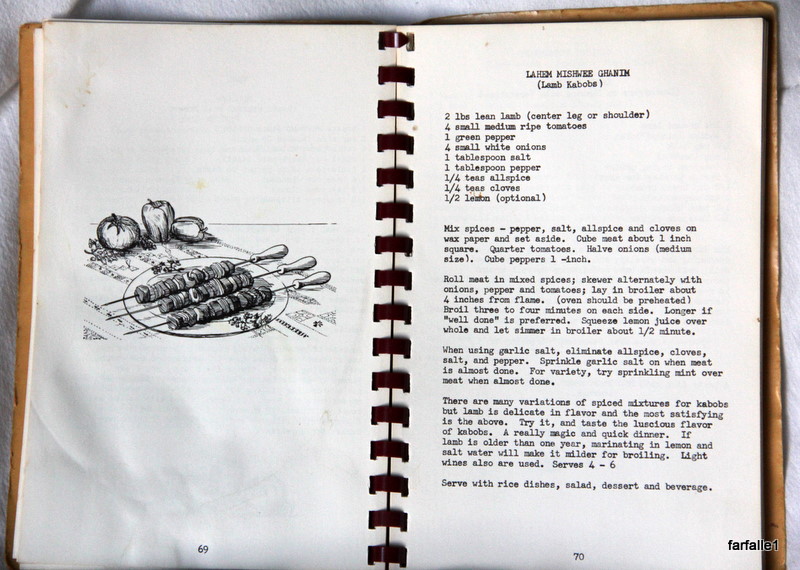 69
LAHEM MISHWEE GHANIM
(Lamb Kabobs)
2 lbs lean lamb (center leg or shoulder)
4 small medium ripe tomatoes
1 green pepper
4 small white onions
1 tablespoon salt
1 tablespoon pepper
1/4 teas allspice
1/4 teas cloves
1/2 lemon (optional)
Mix spices - pepper, salt, allspice and cloves on
wax paper and set aside. Cube meat about 1 inch
square. Quarter tomatoes. Halve onions (medium
size). Cube peppers 1 -inch.
Roll meat in mixed spices; skewer alternately with
onions, pepper and tomatoes; lay in broiler about
4 inches from flame. (oven should be preheated)
Broil three to four minutes on each side. Longer if
"well done" is preferred. Squeeze lemon juice over
whole and let simmer in broiler about 1/2 minute.
When using garlic salt, eliminate allspice, cloves,
salt, and pepper. Sprinkle garlic salt on when meat
is almost done. For variety, try sprinkling mint over
meat when almost done.
There are many variations of spiced mixtures for kabobs
but lamb is delicate in flavor and the most satisfying
is the above. Try it, and taste the luscious flavor
of kabobs. A really magic and quick dinner. If
lamb is older than one year, marinating in lemon and
salt water will make it milder for broiling. Light
wines also are used. Serves 4 - 6
Serve with rice dishes, salad, dessert and beverage.
70
farfalle1